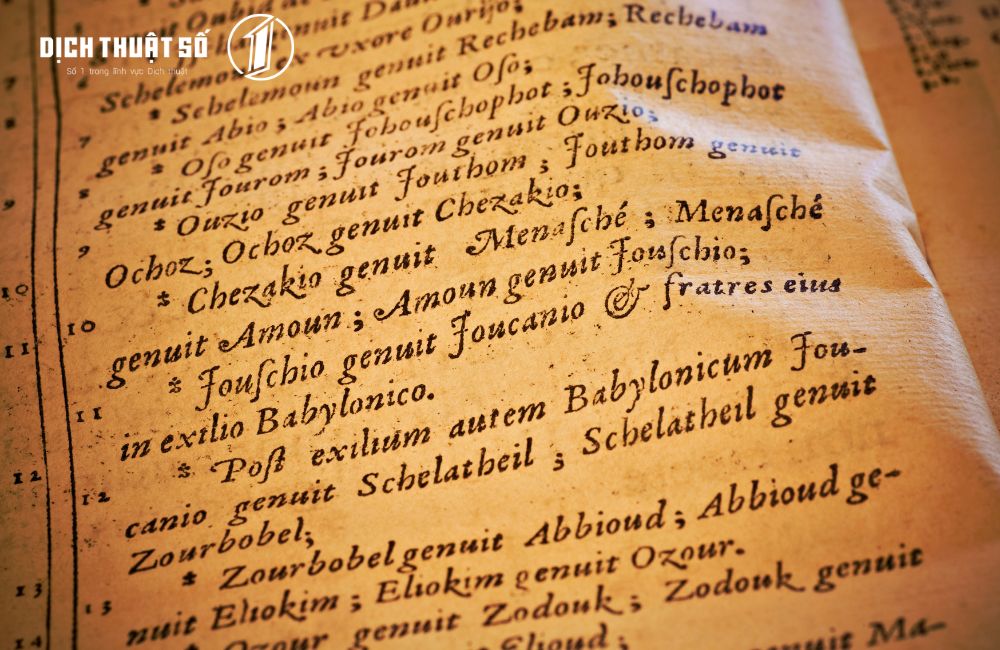 DỊCH THUẬT SỐ 1
Số 1 trong lĩnh vực Dịch thuật
7
8
9
10
11
12
13
14
Schelemoun ex vxore Ourijo;
7 * Schelemoun genuit Rechebam; Rechebam
genuit Abio; Abio genuit Oſo;
8 * Oſo genuit Johouſchophot; Johouſchophot
genuit Jourom; Jourom genuit Ouzio;
9 * Ouzio genuit Jouthom; Jouthom genuit
Ochoz; Ochoz genuit Chezakio;
10 * Chezakio genuit Menaſché; Menaſché
genuit Amoun; Amoun genuit Jouſchio;
11 * Jouſchio genuit Joucanio & fratres eius
in exilio Babylonico.
12 * Poſt exilium autem Babylonicum Jou-
canio genuit Schelatheil; Schelatheil genuit
Zourbobel;
13 * Zourbobel genuit Abbioud; Abbioud ge-
nuit Eliokim; Eliokim genuit Ozour.
* Ozour genuit Zodouk; Zodouk genuit
Elioud;
genuit Ma-